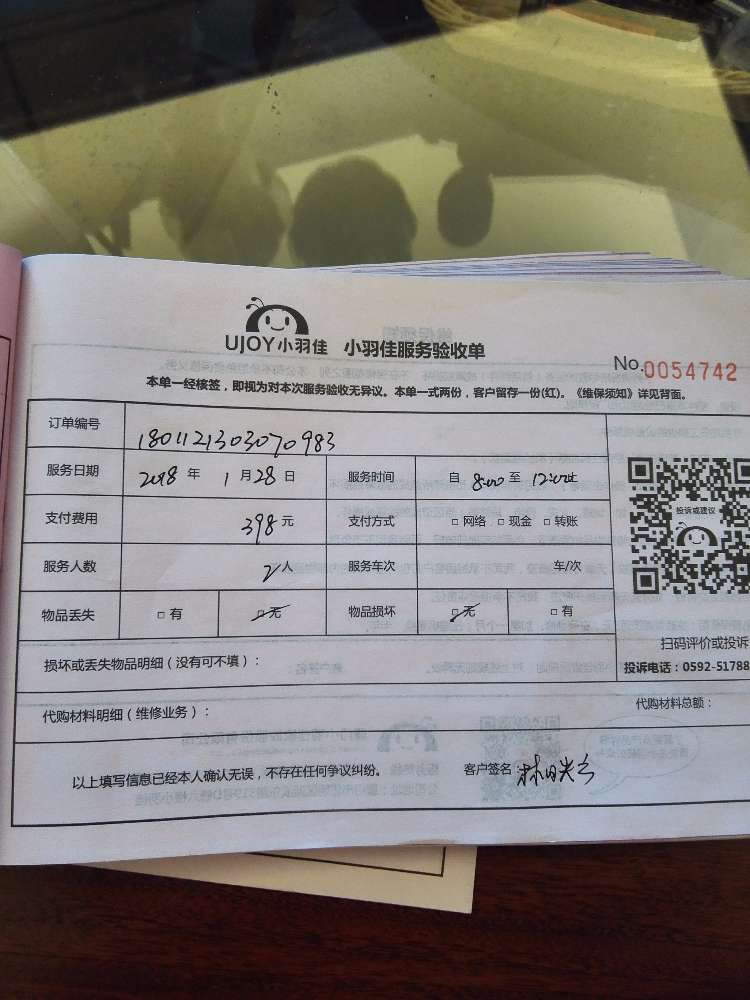 UJOY小羽佳 小羽佳服务验收单
No.0054742
本单一经核签，即视为对本次服务验收无异议。本单一式两份，客户留存一份(红)。《维保须知》详见背面。
订单编号 1801121303070983
服务日期 2018 年 1 月 28 日 服务时间 自 8:00 至 12:00止
支付费用 398 元 支付方式 □ 网络 □ 现金 □ 转账
投诉或建议
服务人数 2 人 服务车次 车/次
物品丢失 □ 有 □ 无 物品损坏 □ 无 □ 有
扫码评价或投诉
损坏或丢失物品明细（没有可不填）：
投诉电话：0592-51788
代购材料明细（维修业务）： 代购材料总额：
以上填写信息已经本人确认无误，不存在任何争议纠纷。 客户签名：